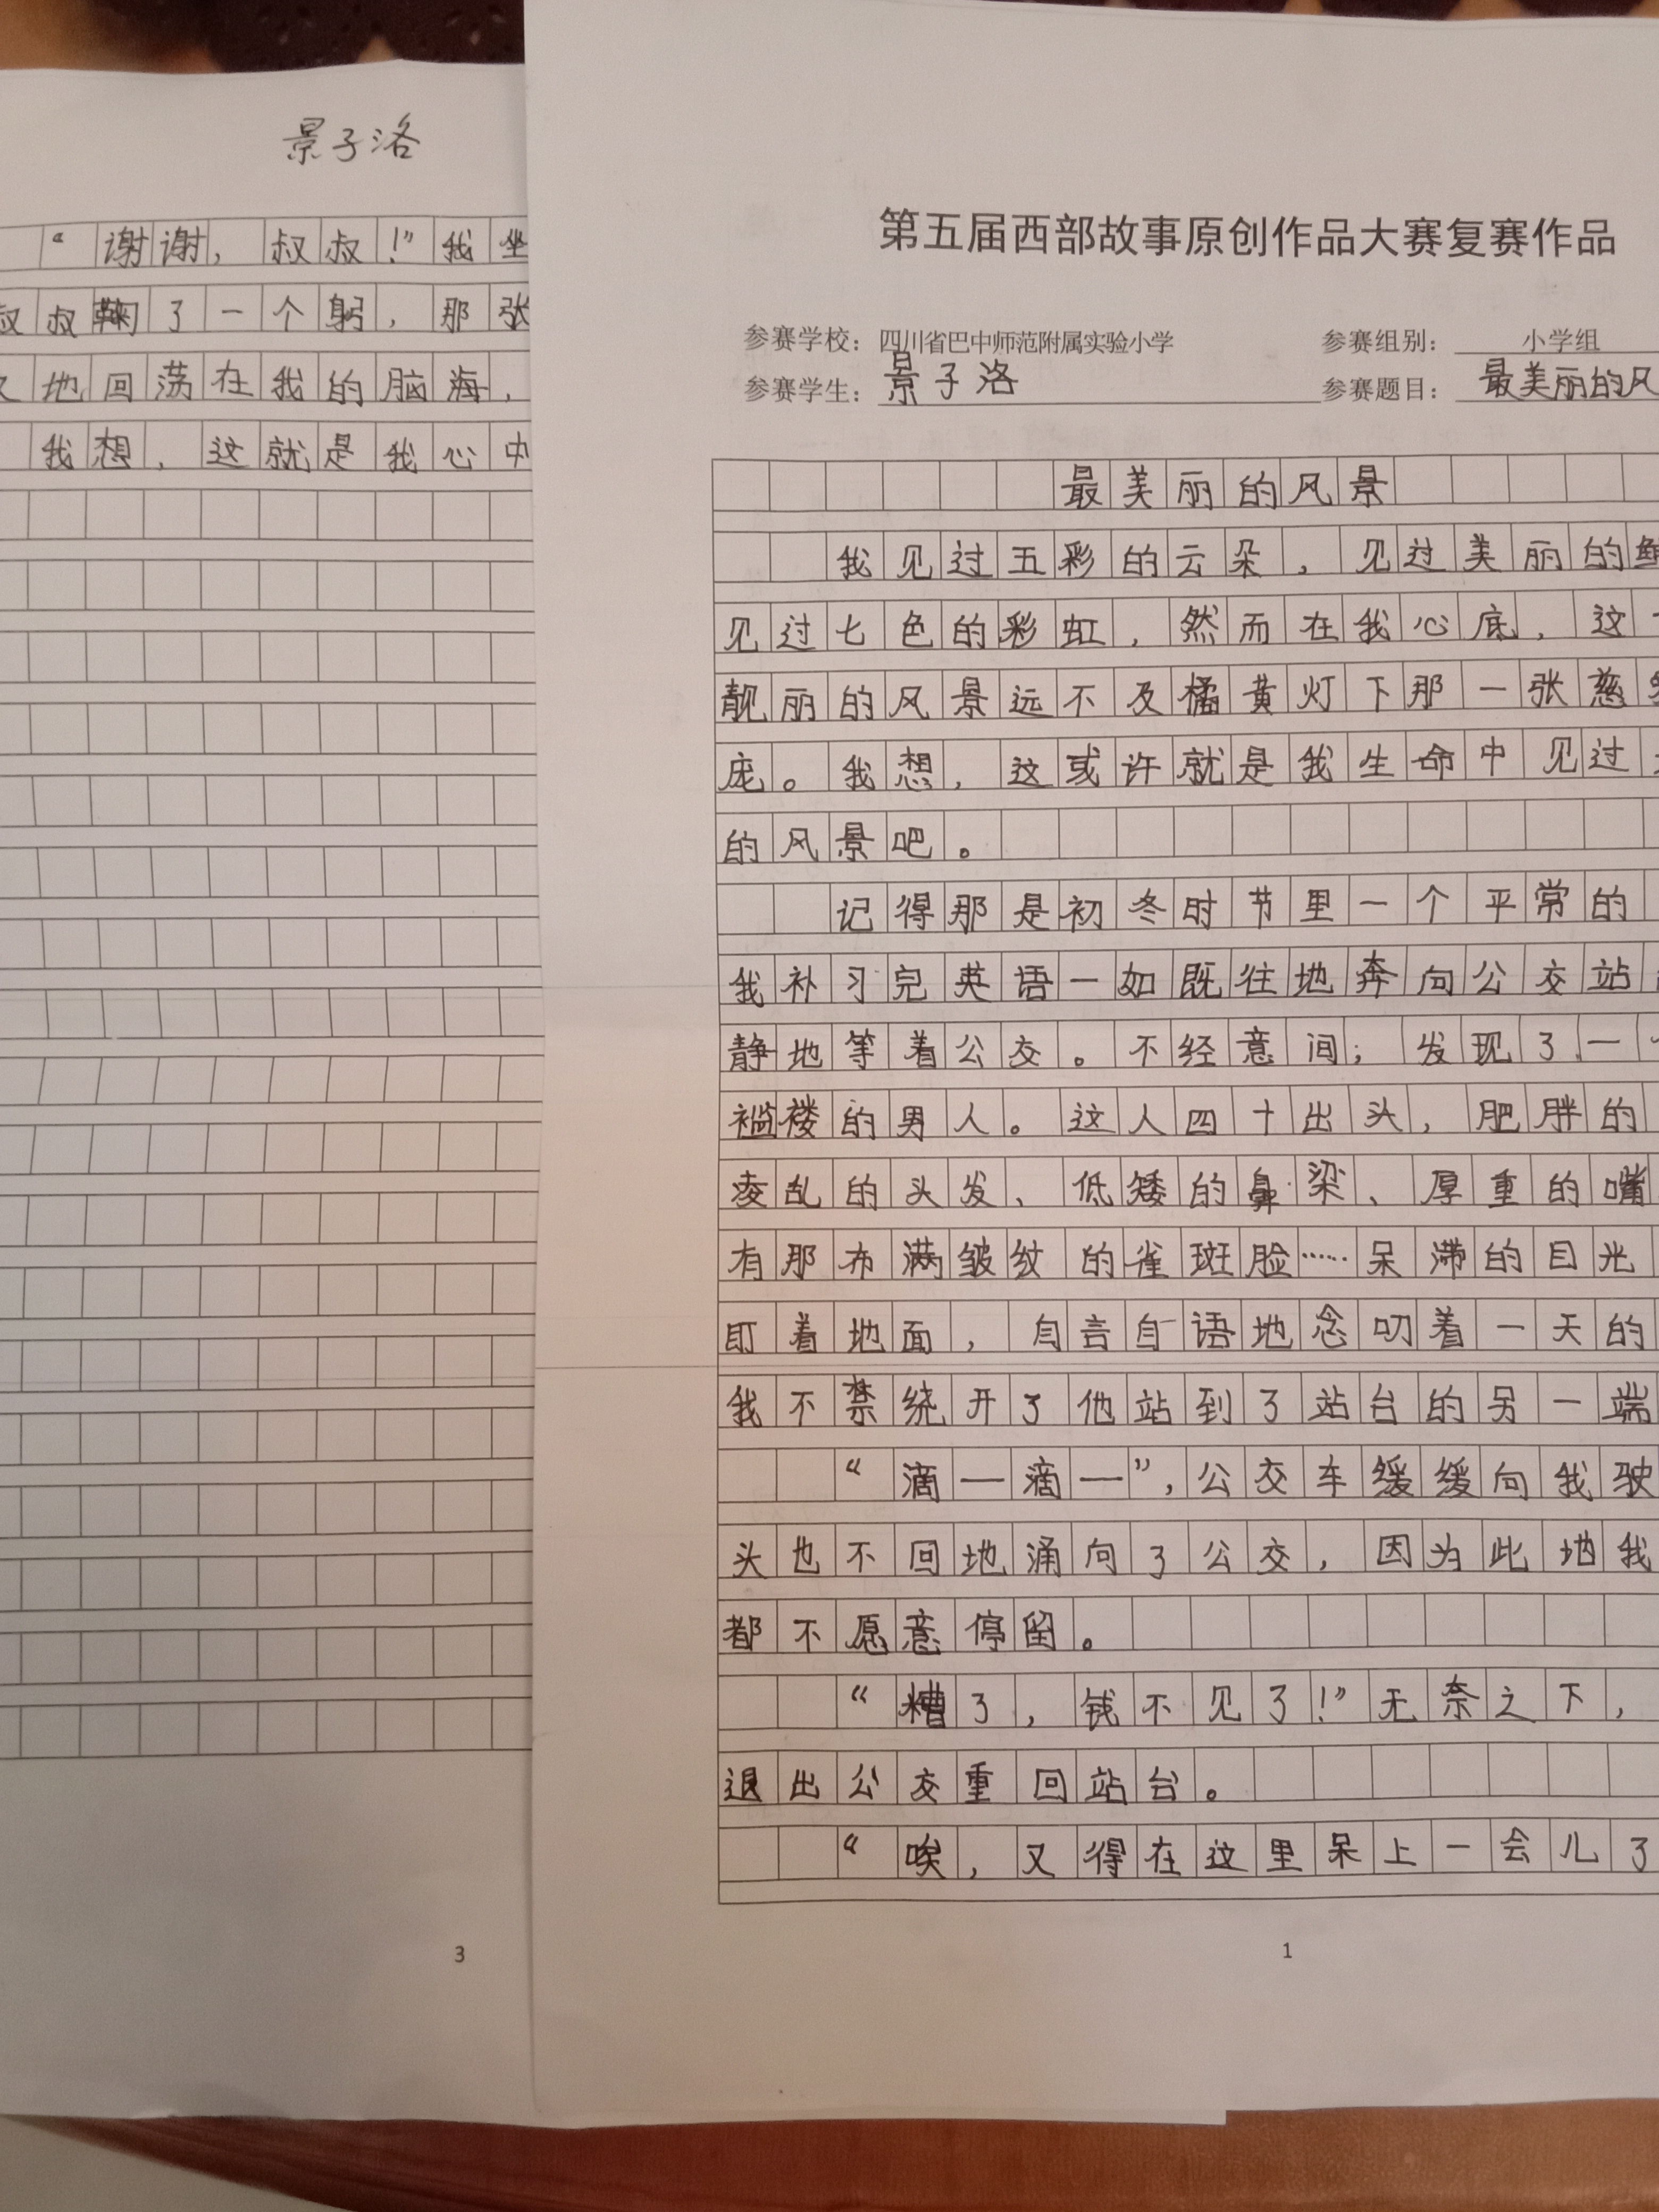 景子洛
“谢谢，叔叔！”我坐
叔叔鞠了一个躬，那张
地回荡在我的脑海，
我想，这就是我心中
3
第五届西部故事原创作品大赛复赛作品
参赛学校：四川省巴中师范附属实验小学 参赛组别：小学组
参赛学生：景子洛 参赛题目：最美丽的风
最美丽的风景
我见过五彩的云朵，见过美丽的
见过七色的彩虹，然而在我心底，这
靓丽的风景远不及橘黄灯下那一张慈
庞。我想，这或许就是我生命中见过
的风景吧。
记得那是初冬时节里一个平常的
我补习完英语一如既往地奔向公交站
静地等着公交。不经意间，发现了一
褴褛的男人。这人四十出头，肥胖的
凌乱的头发、低矮的鼻梁、厚重的嘴
有那布满皱纹的雀斑脸……呆滞的目光
盯着地面，自言自语地念叨着一天的
我不禁绕开了他站到了站台的另一端
“滴—滴—”，公交车缓缓向我驶
头也不回地涌向了公交，因为此地我
都不愿意停留。
“糟了，钱不见了！”无奈之下，
退出公交重回站台。
“唉，又得在这里呆上一会儿了
1